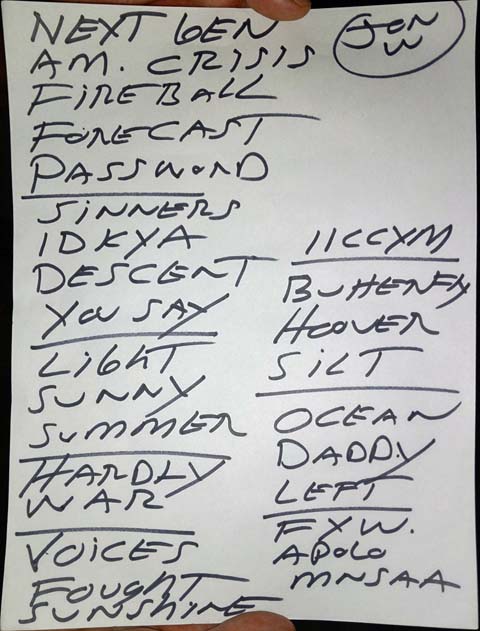 NEXT GEN
JON
W
AM. CRISIS
FIREBALL
FORECAST
PASSWORD
SINNERS
IDKYA
DESCENT
YOU SAY
LIGHT
SUNNY
SUMMER
HARDLY
WAR
VOICES
FOUGHT
SUNSHINE
IICCYM
BUHENFY
HOOVER
SILT
OCEAN
DADDY
LEFT
FXW.
APOLO
MNSAA